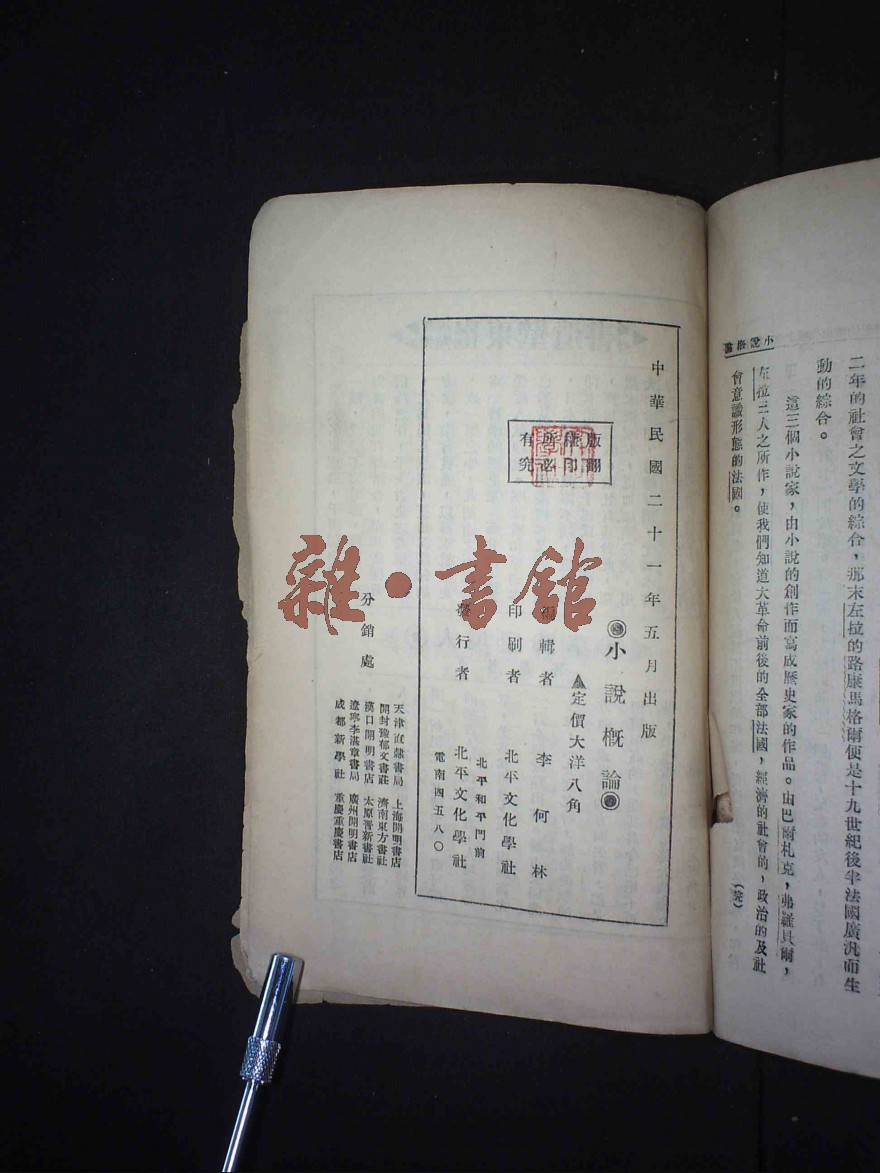 二年的社會之文學的綜合，那末左拉的路康馬格爾便是十九世紀後半法國廣汎而生
動的綜合。
這三個小說家，由小說的創作而寫成歷史家的作品。由巴爾札克，弗羅貝爾，
左拉三人之所作，使我們知道大革命前後的全部法國，經濟的社會的，政治的及社
會意識形態的法國。
（完）
小說概論
中華民國二十一年五月出版
版權所有
翻印必究
小說概論
定價大洋八角
編輯者 李何林
印刷者 北平文化學社
北平和平門前
發行者 北平文化學社
電南四五八〇
分銷處
天津直隸書局 上海開明書店
開封豫郁文書莊 濟南東方書社
漢口開明書店 太原晋新書社
遼寧李湛章書局 廣州開明書店
成都新學社 重慶重慶書店
雜·書館